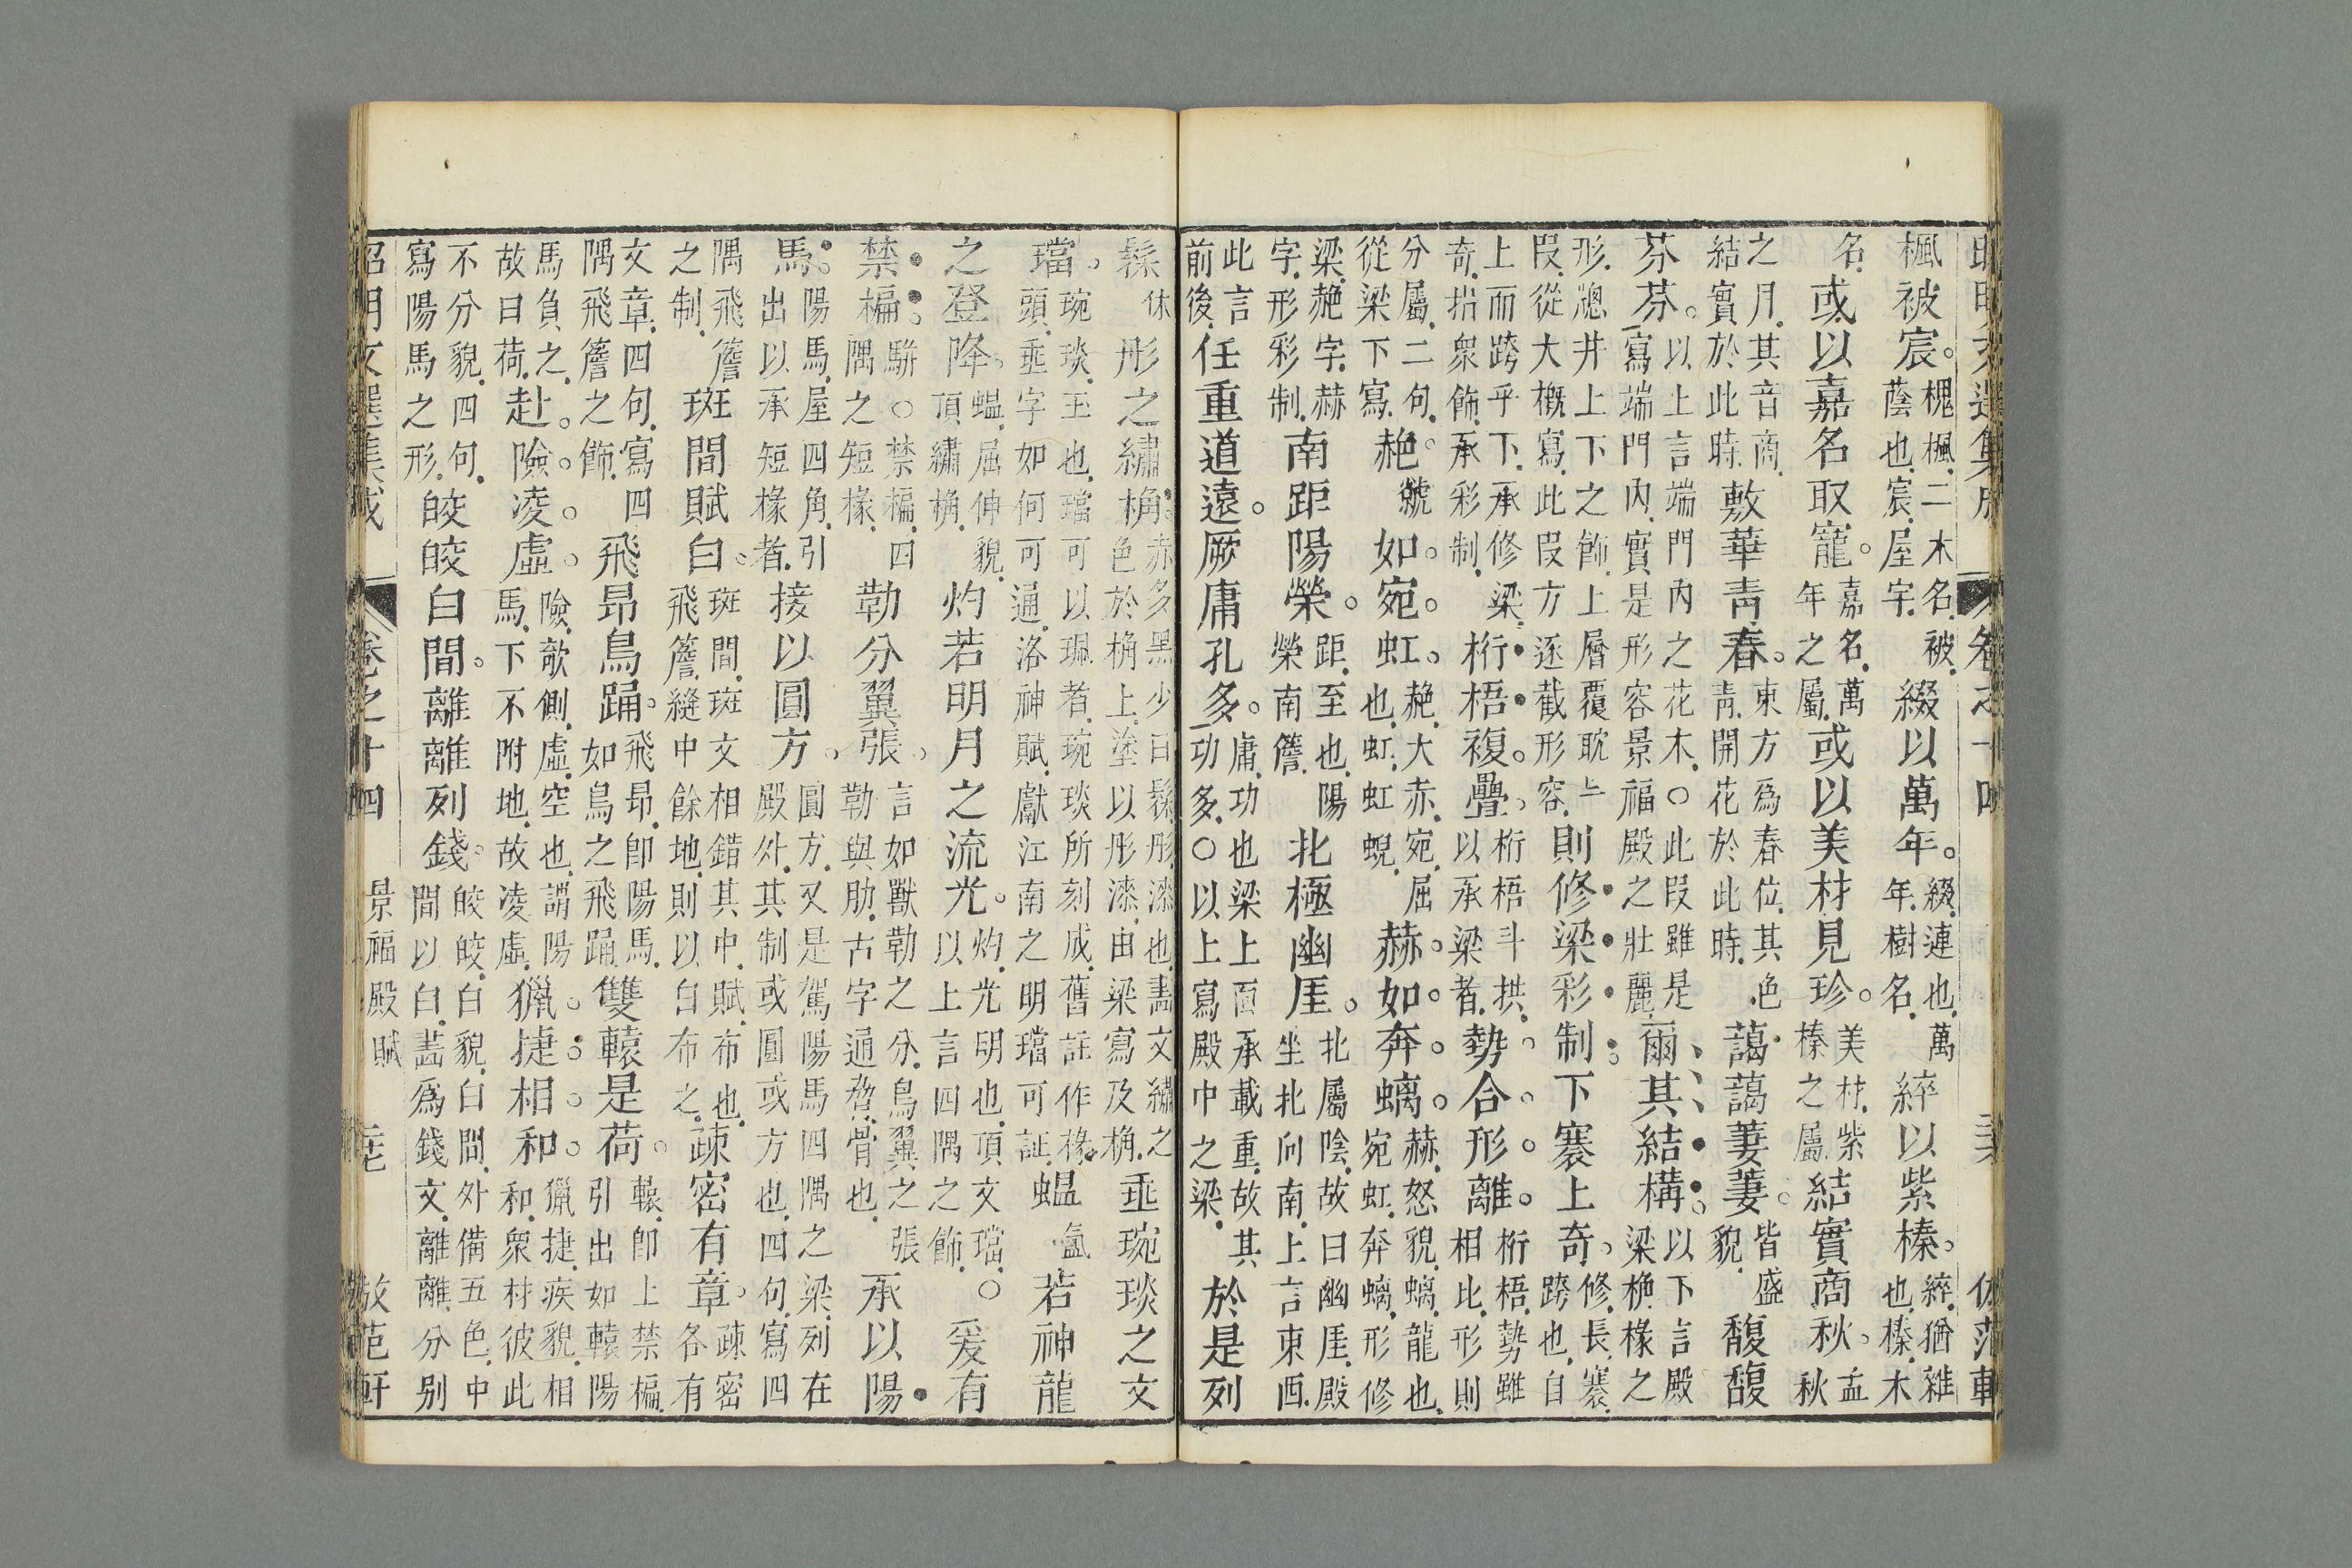 楓被宸。槐楓二木名被蔭也宸屋宇綴以萬年。綴連也萬年樹名綷以紫榛。綷猶雜也榛木
名或以嘉名取寵。嘉名萬年之屬或以美材見珍。美材紫榛之屬結實商秋。孟秋
之月其音商結實於此時敷華青春。東方爲春位其色青開花於此時藹藹萋萋。皆盛貌馥馥
芬芬。以上言端門內之花木○此段雖是寫端門內實是形容景福殿之壯麗爾其結構。以下言殿梁桷椽之
形總井上下之飾上層覆耽上段從大概寫此段方逐截形容則修梁彩制。下褰上奇。修長褰跨也自
上而跨乎下承修梁奇指衆飾承彩制桁梧複疊。桁梧斗拱以承梁者勢合。形離。桁梧勢雖相比形則
分屬二句從梁下寫赩。虩如。宛。虹。赩大赤宛屈也虹虹蜺赫。如。奔。螭。赫怒貌螭龍也宛虹奔螭形修
梁赩字赫字形彩制南距陽榮。距至也陽榮南簷北極幽厓。北屬陰故曰幽厓殿坐北向南上言東西
此言前後任重道遠。厥庸孔多。庸功也梁上面承載重故其功多○以上寫殿中之梁於是列
髹休彤之繡桷。赤多黑少曰髹彤漆也畫文繡之色於桷上塗以彤漆由梁寫及桷垂琬琰之文
璫。琬琰玉也璫可以珮者琬琰所刻成舊註作椽頭垂字如何可通洛神賦獻江南之明璫可証蝹氳若神龍
之登降。蝹屈伸貌頂繡桷灼若明月之流光。灼光明也頂文璫○以上言四隅之飾爰有
禁楄。駢○禁楄四隅之短椽勒分翼張。言如獸勒之分鳥翼之張勒與肋古字通脅骨也承以陽
馬。陽馬屋四角引出以承短椽者接以圓方。圓方又是駕陽馬四隅之梁列在殿外其制或圓或方也四句寫四
隅飛簷之制斑間賦白。斑間斑文相錯其中賦布也飛簷縫中餘地則以白布之疎密有章。疎密各有
文章四句寫四隅飛簷之飾飛昻鳥踊。飛昻即陽馬如鳥之飛踊雙轅是荷。轅即上禁楄引出如轅陽
馬負之故曰荷赴。險。凌。虛。險欹側虛空也謂陽馬下不附地故凌虛獵。捷。相。和。獵捷疾貌相和衆材彼此
不分貌四句寫陽馬之形皎皎白間。離離列錢。皎皎白貌白間外備五色中間以白畵爲錢文離離分別
昭明文選集成 卷之十四 景福殿賦 倣范軒